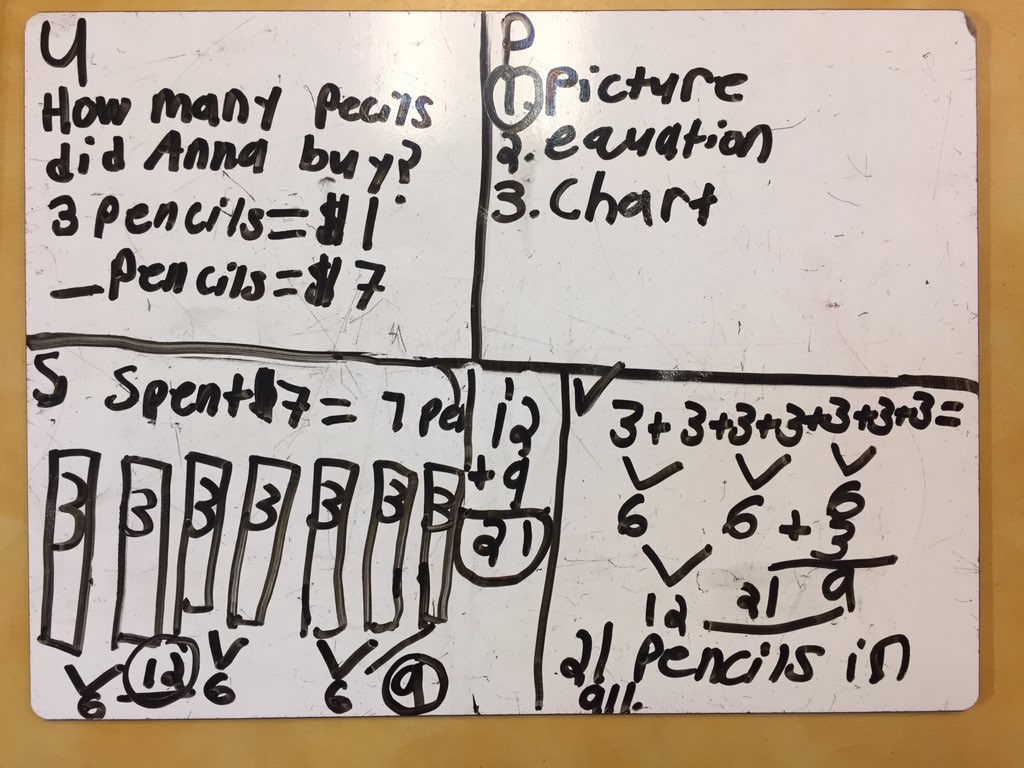 U
How many pecils
did Anna buy?
3 pencils = $1
_ pencils = $7
P
1. picture
2. equation
3. Chart
S
Spent $7 = 7 pe
3 3 3 3 3 3 3
6 12 6 6 9
12
+9
21
V
3+3+3+3+3+3+3=
6 6 6
+3
12 21 9
21 pencils in
all.